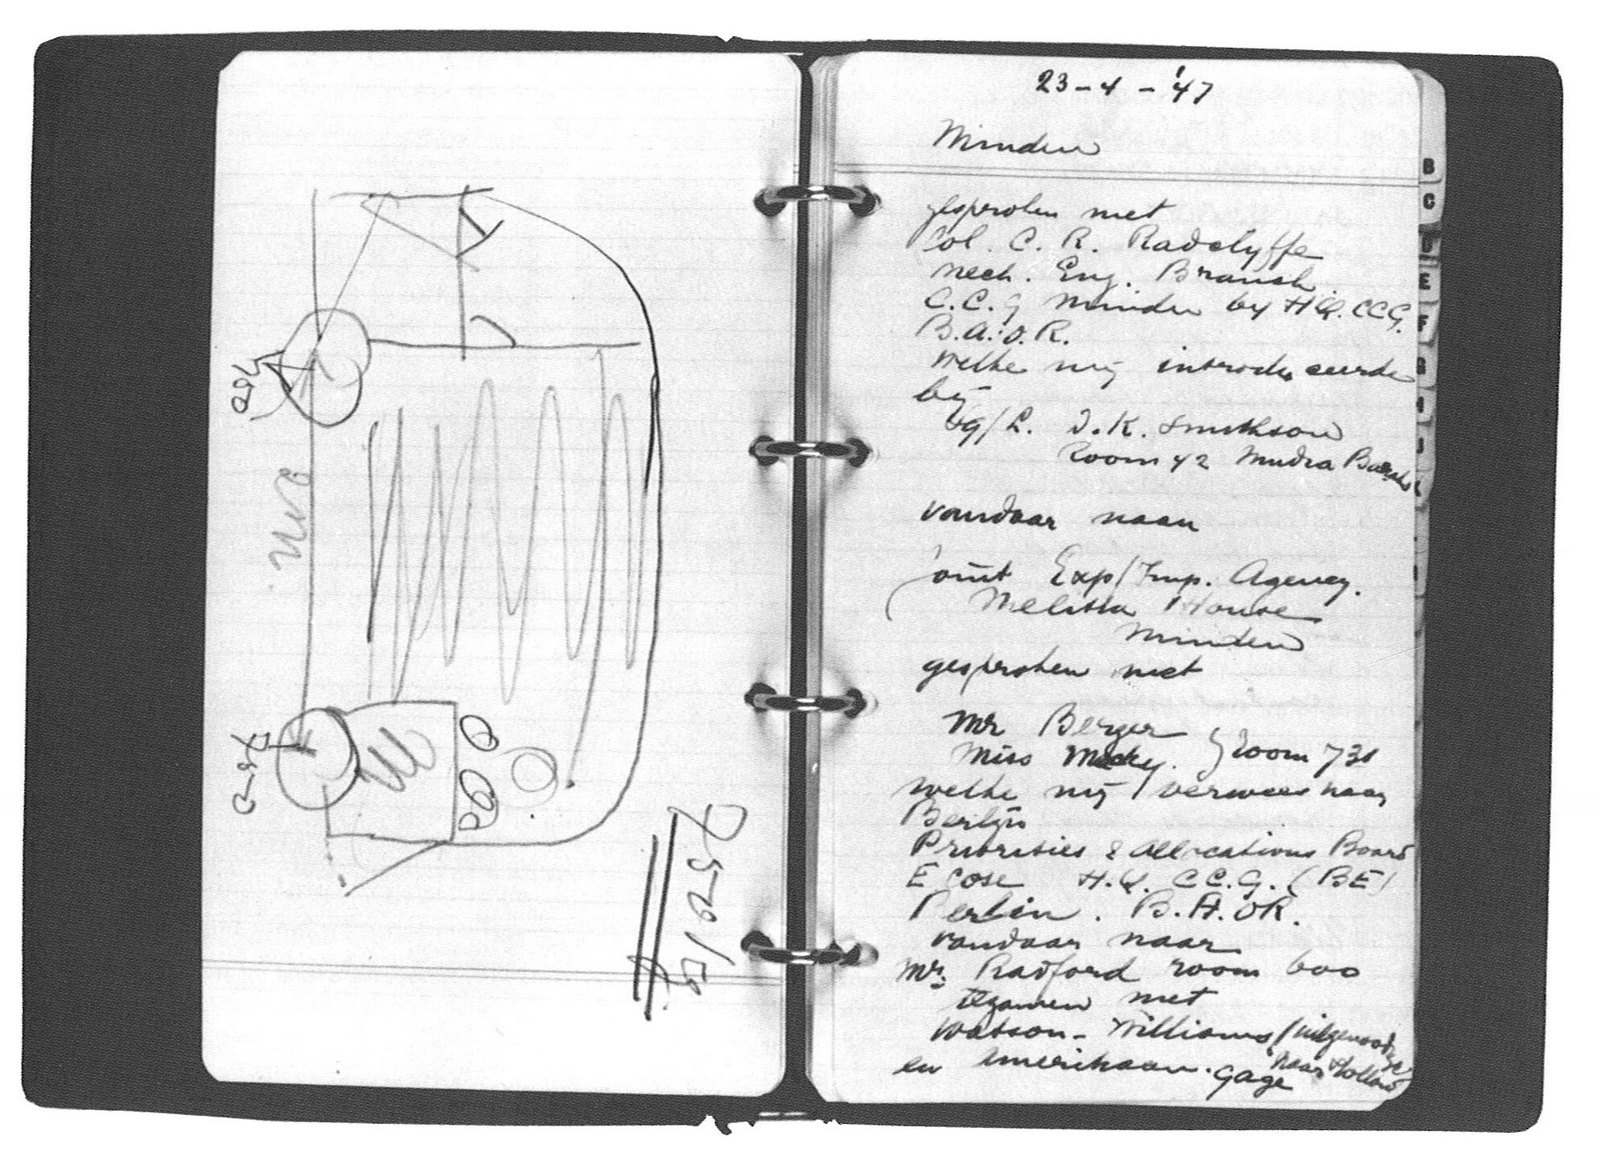 750
2 m.
750
750 kg
23-4-'47
Minden
gesproken met
Col. C. R. Radclyffe
Mech. Eng. Branch.
C.C.G Minden by HQ. CCG.
B.A.O.R.
welke mij introduceerde
bij
I.K. Smithson
Room 42 Mudra Barracks
vandaar naar
Joint Exp/Imp. Agency.
Melitta House
Minden
gesproken met
Mr Berger
Miss room 731
welke mij verwees naar
Berlijn
Priorities & Allocations Board
E Cose H.Q. CC.G. (BE)
Berlin. B.A.OR.
vandaar naar
Mr. Radford room 600
tezamen met
Watson-Williams / uitgenoodigd
naar Holland
en Amerikaan. Gage
B
C
E
F